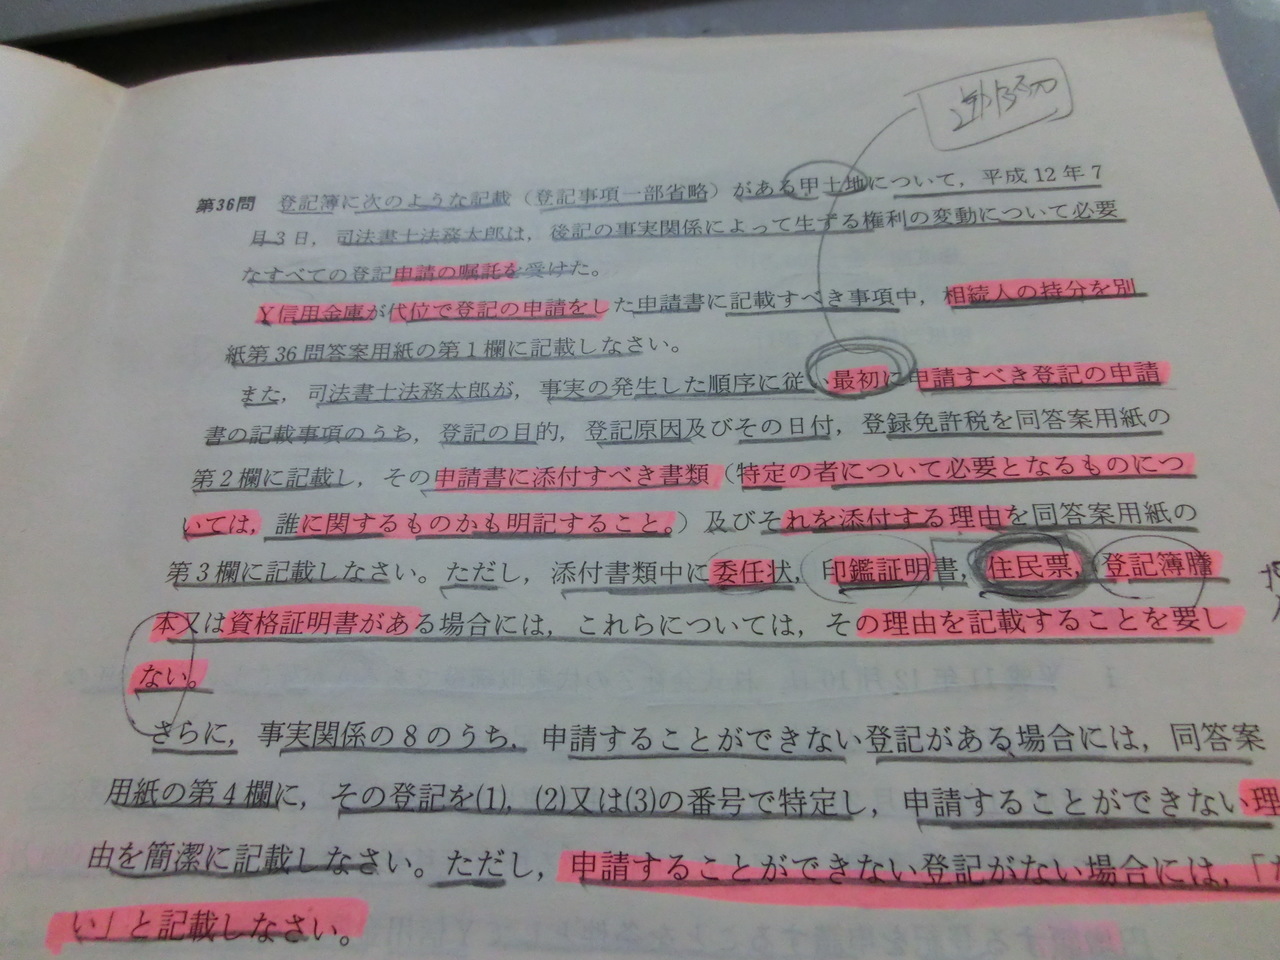 第36問 登記簿に次のような記載（登記事項一部省略）がある甲土地について，平成12年7
月3日，司法書士法務太郎は，後記の事実関係によって生ずる権利の変動について必要
なすべての登記申請の嘱託を受けた。
Y信用金庫が代位で登記の申請をした申請書に記載すべき事項中，相続人の持分を別
紙第36問答案用紙の第1欄に記載しなさい。
また，司法書士法務太郎が，事実の発生した順序に従い最初に申請すべき登記の申請
書の記載事項のうち，登記の目的，登記原因及びその日付，登録免許税を同答案用紙の
第2欄に記載し，その申請書に添付すべき書類（特定の者について必要となるものにつ
いては，誰に関するものかも明記すること。）及びそれを添付する理由を同答案用紙の
第3欄に記載しなさい。ただし，添付書類中に委任状，印鑑証明書，住民票，登記簿謄
本又は資格証明書がある場合には，これらについては，その理由を記載することを要し
ない。
さらに，事実関係の8のうち，申請することができない登記がある場合には，同答案
用紙の第4欄に，その登記を(1)，(2)又は(3)の番号で特定し，申請することができない理
由を簡潔に記載しなさい。ただし，申請することができない登記がない場合には，「な
い」と記載しなさい。